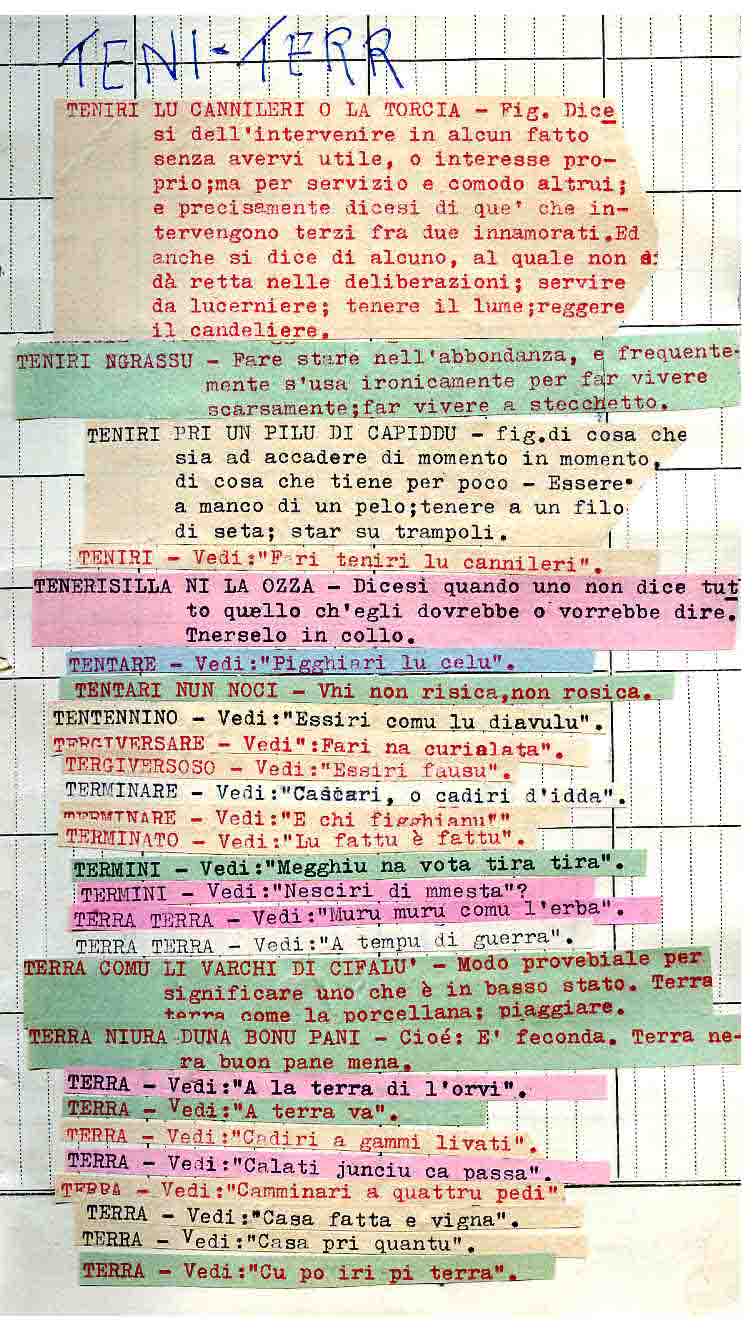 TENI-TERR
TENIRI LU CANNILERI O LA TORCIA - Fig. Dice
si dell'intervenire in alcun fatto
senza avervi utile, o interesse pro-
prio;ma per servizio e comodo altrui;
e precisamente dicesi di que' che in-
tervengono terzi fra due innamorati.Ed
anche si dice di alcuno, al quale non si
dà retta nelle deliberazioni; servire
da lucerniere; tenere il lume;reggere
il candeliere.
TENIRI NGRASSU - Fare stare nell'abbondanza, e frequente-
mente s'usa ironicamente per far vivere
scarsamente;far vivere a stecchetto.
TENIRI PRI UN PILU DI CAPIDDU - fig.di cosa che
sia ad accadere di momento in momento,
di cosa che tiene per poco - Essere
a manco di un pelo;tenere a un filo
di seta; star su trampoli.
TENIRI - Vedi:"Fari teniri lu cannileri".
TENERISILLA NI LA OZZA - Dicesi quando uno non dice tut
to quello ch'egli dovrebbe o vorrebbe dire.
Tnerselo in collo.
TENTARE - Vedi:"Pigghiari lu celu".
TENTARI NUN NOCI - Vhi non risica,non rosica.
TENTENNINO - Vedi:"Essiri comu lu diavulu".
TERGIVERSARE - Vedi":Fari na curialata".
TERGIVERSOSO - Vedi:"Essiri fausu".
TERMINARE - Vedi:"Cascari, o cadiri d'idda".
TERMINARE - Vedi:"E chi figghianu""
TERMINATO - Vedi:"Lu fattu è fattu".
TERMINI - Vedi:"Megghiu na vota tira tira".
TERMINI - Vedi:"Nesciri di mmesta"?
TERRA TERRA - Vedi:"Muru muru comu l'erba".
TERRA TERRA - Vedi:"A tempu di guerra".
TERRA COMU LI VARCHI DI CIFALU' - Modo provebiale per
significare uno che è in basso stato. Terra
terra come la porcellana; piaggiare.
TERRA NIURA DUNA BONU PANI - Cioé: E' feconda. Terra ne-
ra buon pane mena.
TERRA - Vedi:"A la terra di l'orvi".
TERRA - Vedi:"A terra va".
TERRA - Vedi:"Cadiri a gammi livati".
TERRA - Vedi:"Calati junciu ca passa".
TERRA - Vedi:"Camminari a quattru pedi"
TERRA - Vedi:"Casa fatta e vigna".
TERRA - Vedi:"Casa pri quantu".
TERRA - Vedi:"Cu po iri pi terra".